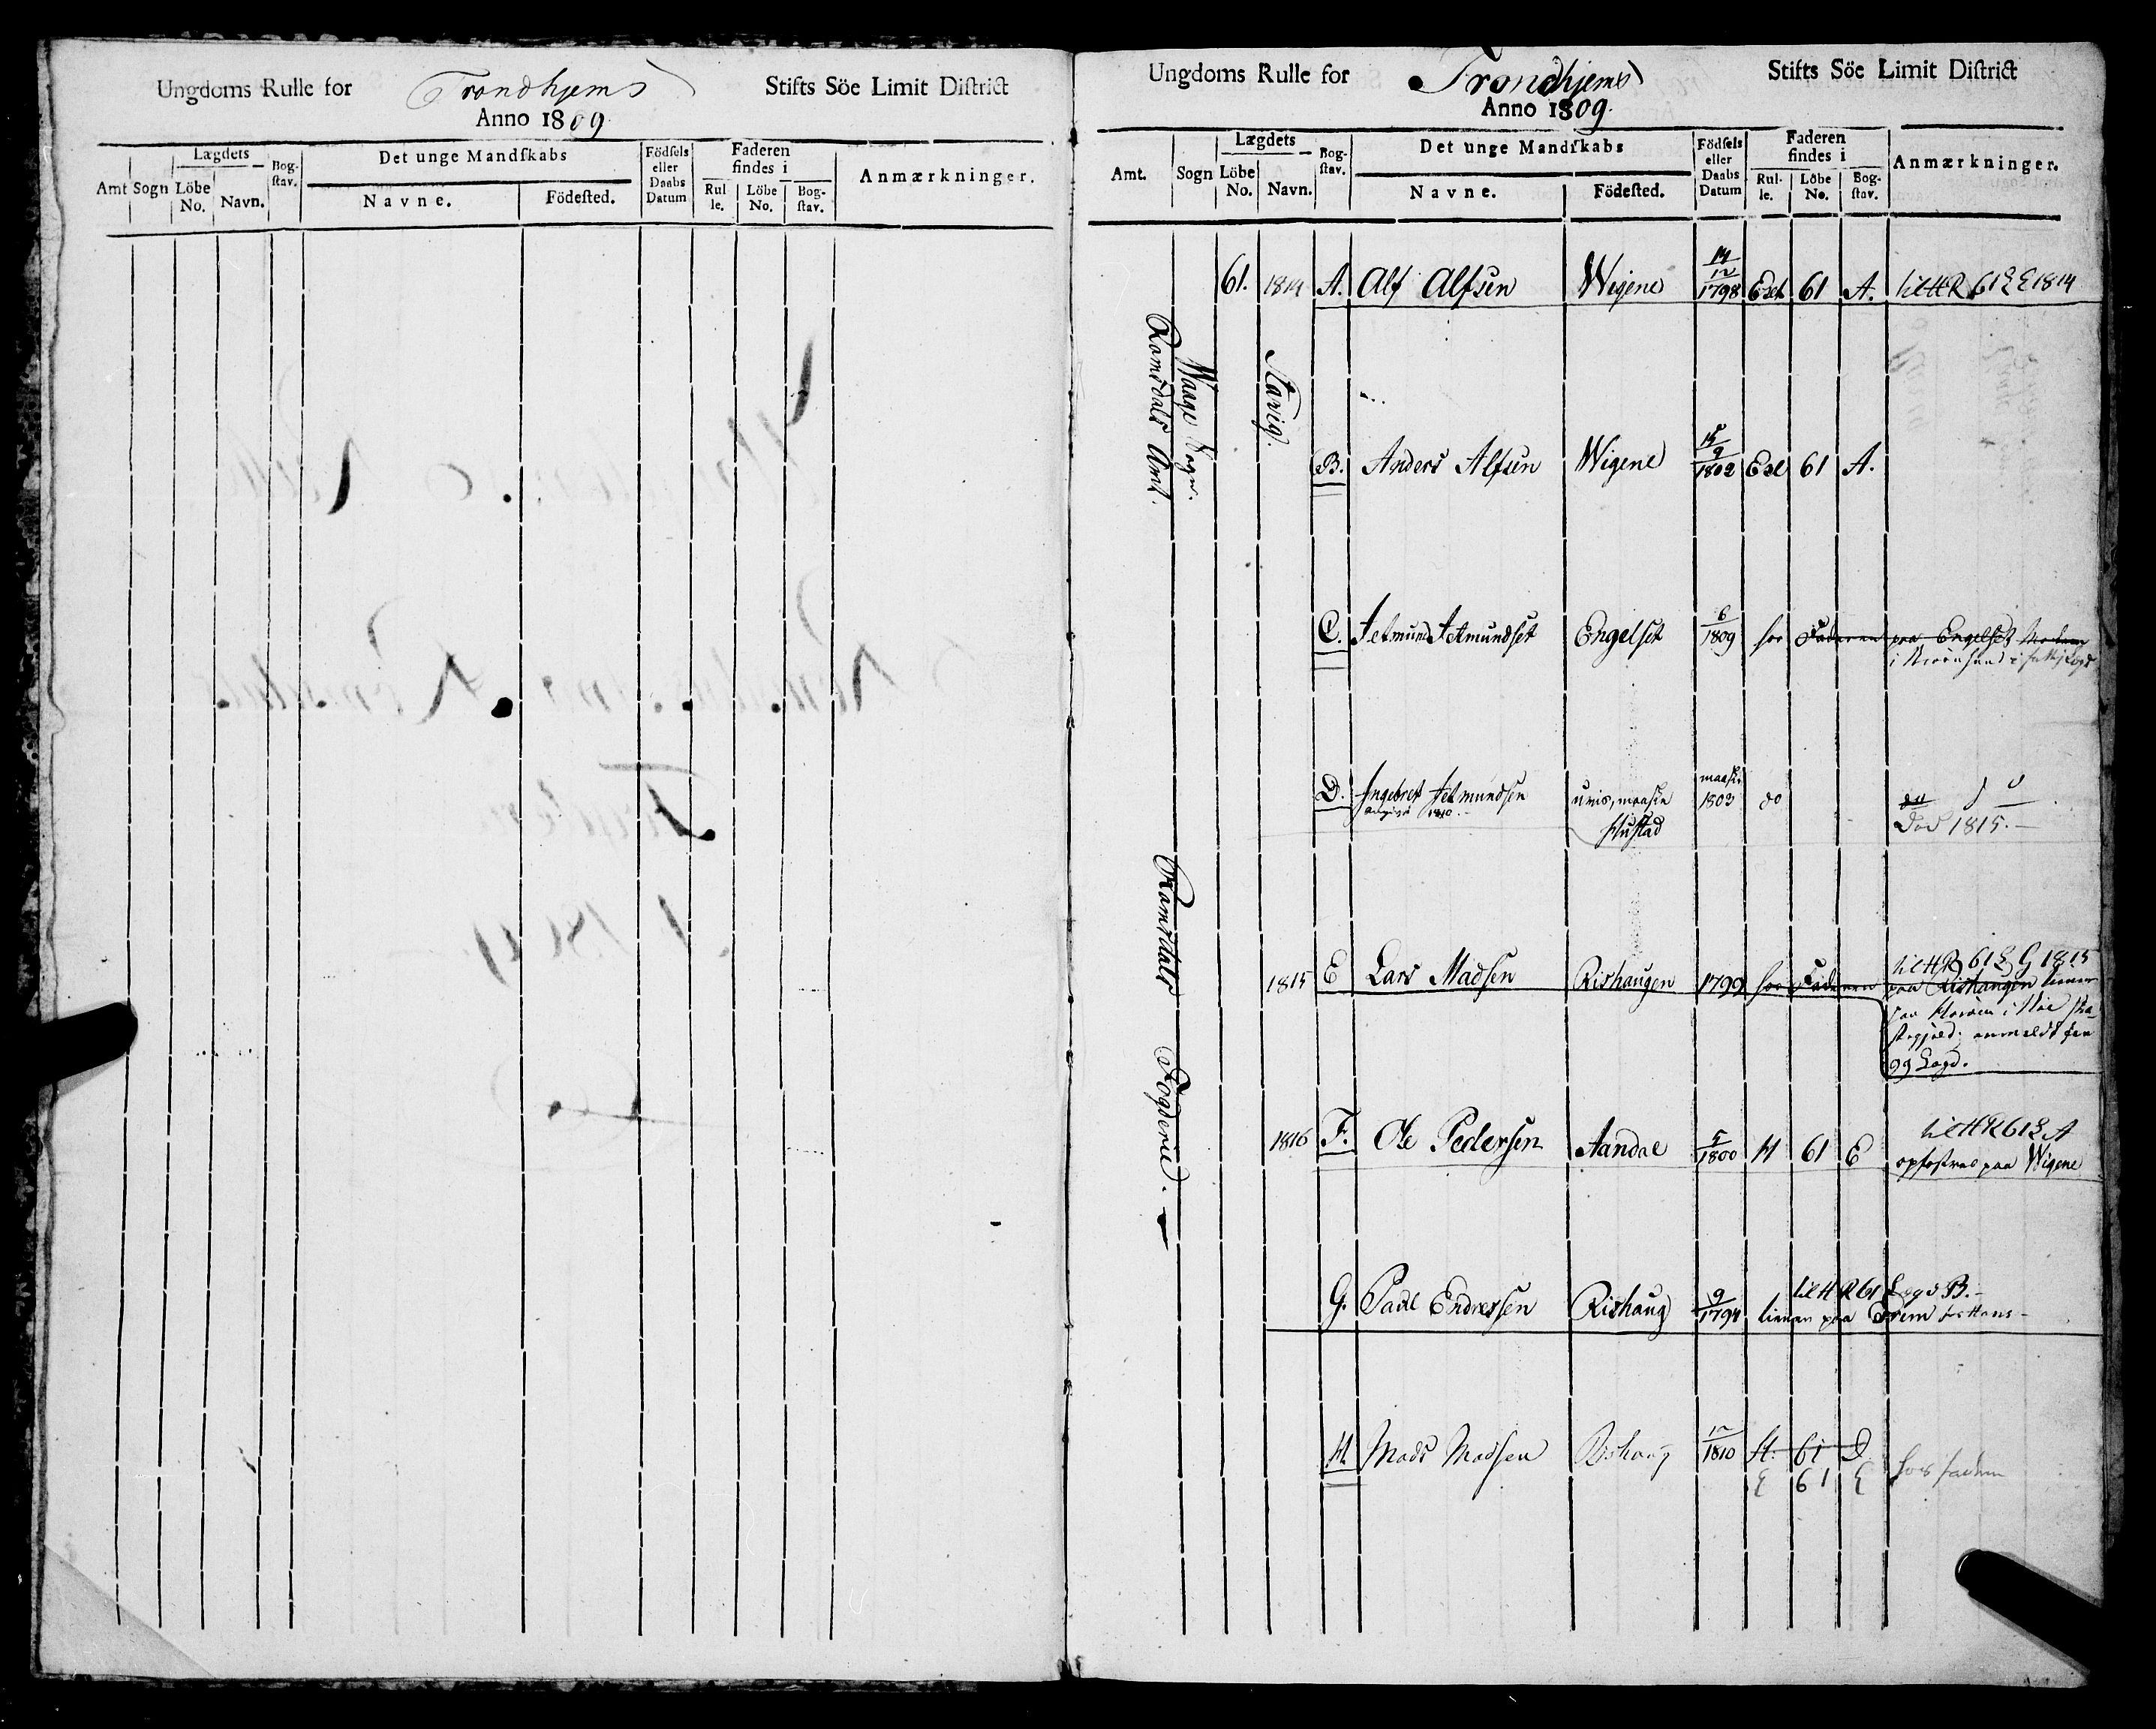 Ungdoms Rulle for Trondhjems Stifts Söe Limit District
Anno 1809.
Amt Sogn Lægdets Löbe No. Navn. Bog-stav. Det unge Mandskabs Navne. Födested. Födsels eller Daabs Datum Faderen findes i Rul-le. Löbe No. Bog-stav. Anmærkninger.
Ungdoms Rulle for Trondhjems Stifts Söe Limit District
Anno 1809.
Amt. Sogn Lægdets Löbe No. Navn. Bog-stav. Det unge Mandskabs Navne. Födested. Födsels eller Daabs Datum Faderen findes i Rul-le. Löbe No. Bog-stav. Anmærkninger.
Romsdals Amt.
Waage Sogn.
Romsdals Fogderie.
Stavig.
61. 1814 A. Alf Alfsen Wigene 14/12 1798 Exl 61 A. til HR 61 L E 1814
B. Anders Alfsen Wigene 15/9 1802 Exl 61 A.
C. Jetmund Jetmundset Engelset 6/1809 hos Faderen paa Engelset
D. Ingebret Jetmundsen uvis, maaskee 1803 do
1810 Hustad
Död 1815.
1815 E Lars Madsen Rishaugen 1799 hos Faderen til HR 61 L G 1815
paa Rishaugen tiener
anmeldt fra
99 Lægd.
1816 F. Ole Pedersen Aandal 5/1800 H 61 E til HR 61 L A
opfostres paa Wigene
G. Paul Endresen Rishaug 9/1794 til HR 61 Lægd B.
tiener paa Frem
H. Mads Madsen Rishaug 12/1810 H. 61 D
E 61 E hos faderen